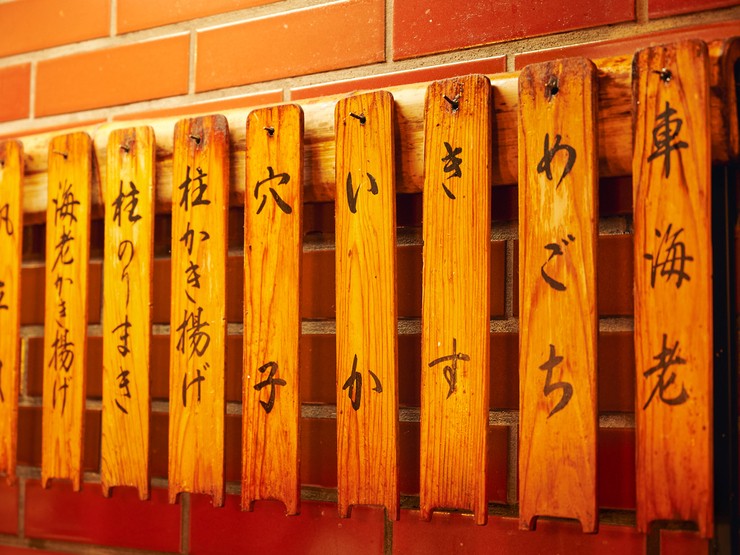 車海老
めごち
きす
いか
穴子
柱かき揚げ
柱のりまき
海老かき揚げ